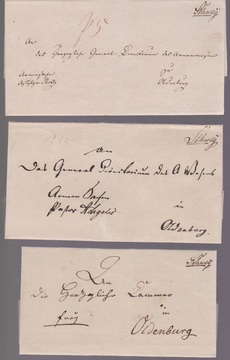 Schweÿ
An
das Herzogliche General-Directorium des Armenwesens
zu
Armensache
Oldenburg
Schweÿ
An
Das General Directorium des A Wesens
Armen Sachen
Pastor
in
Oldenburg.
Schweÿ
An
die Herzogliche Cammer
frey
in
Oldenburg